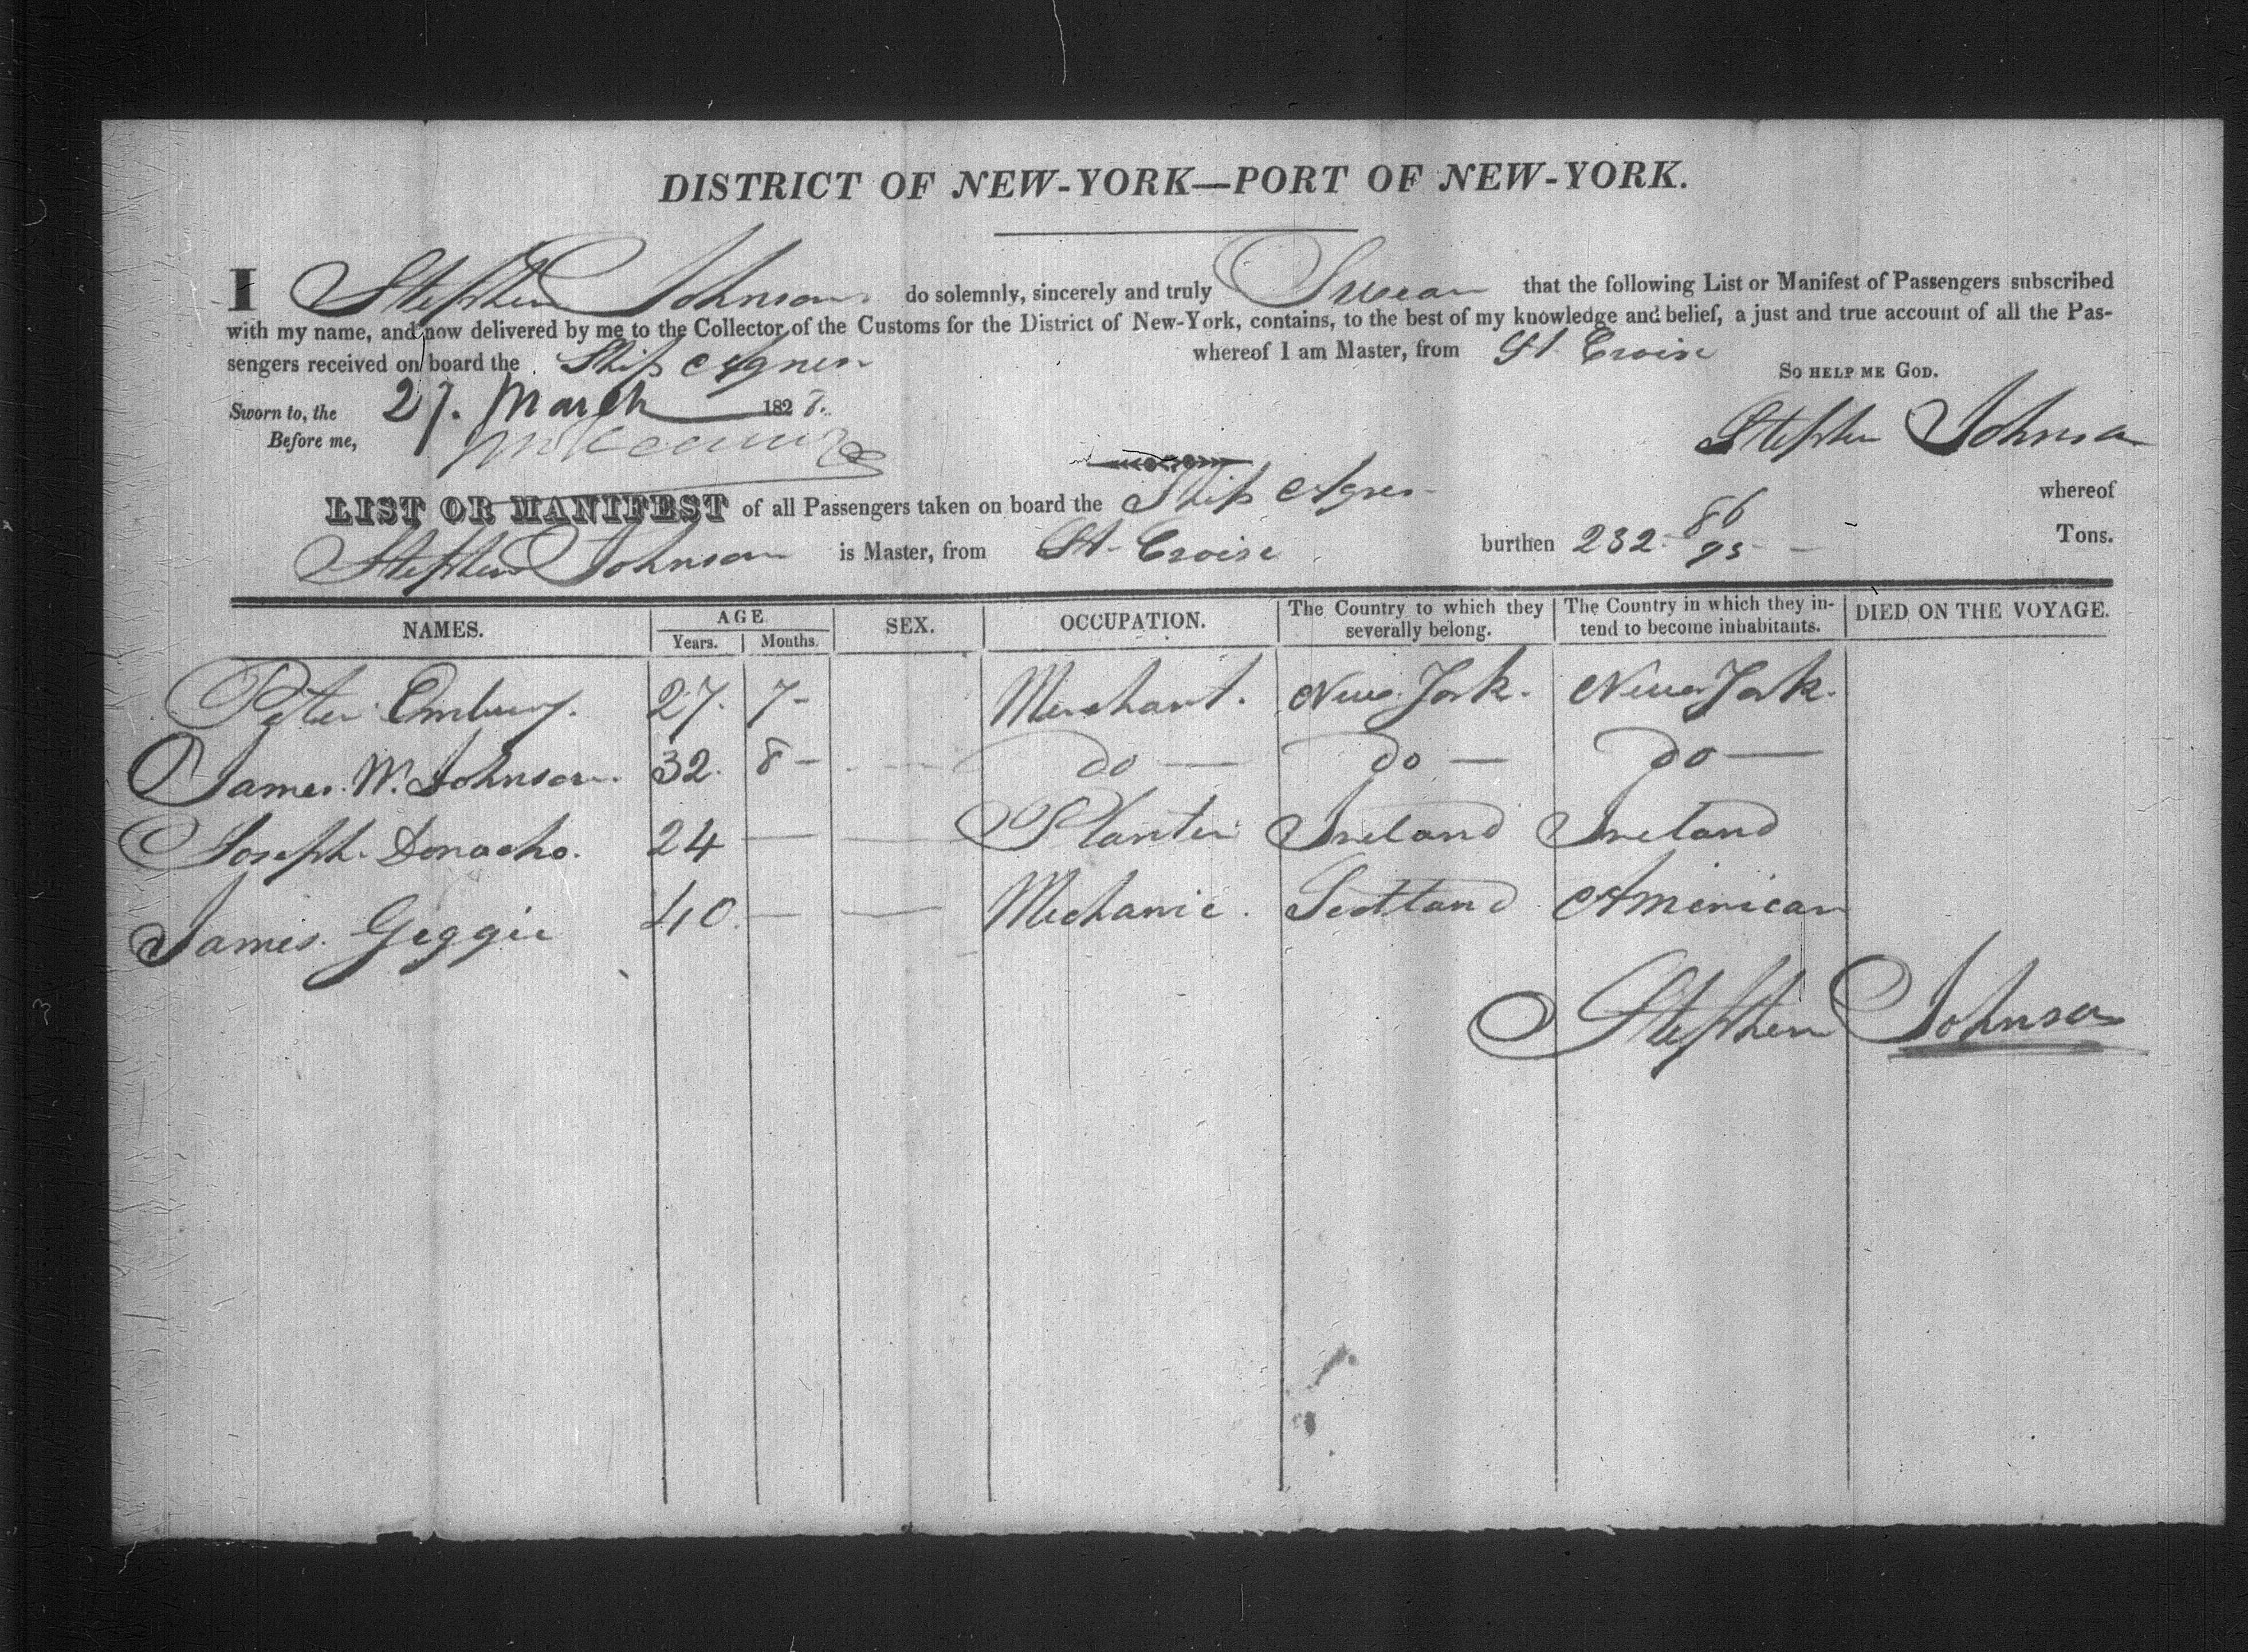 DISTRICT OF NEW-YORK—PORT OF NEW-YORK.
I Stephen Johnson do solemnly, sincerely and truly Swear that the following List or Manifest of Passengers subscribed
with my name, and now delivered by me to the Collector of the Customs for the District of New-York, contains, to the best of my knowledge and belief, a just and true account of all the Pas-
sengers received on board the Ship Agnes whereof I am Master, from St. Croix
So help me God.
Sworn to, the 27. March 1828.
Before me,
Stephen Johnson
LIST OR MANIFEST of all Passengers taken on board the Ship Agnes whereof
Stephen Johnson is Master, from St. Croix burthen 232 86/95 Tons.
NAMES. AGE SEX. OCCUPATION. The Country to which they severally belong. The Country in which they in- tend to become inhabitants. DIED ON THE VOYAGE.
Years. Months.
Peter Embury. 27. 7- Merchant. New York. New York.
James. W. Johnson. 32. 8- Do — Do — Do —
Joseph Donacho. 24 — — Planter Ireland Ireland
James. Geggie 40 — — Mechanic. Scotland American
Stephen Johnson